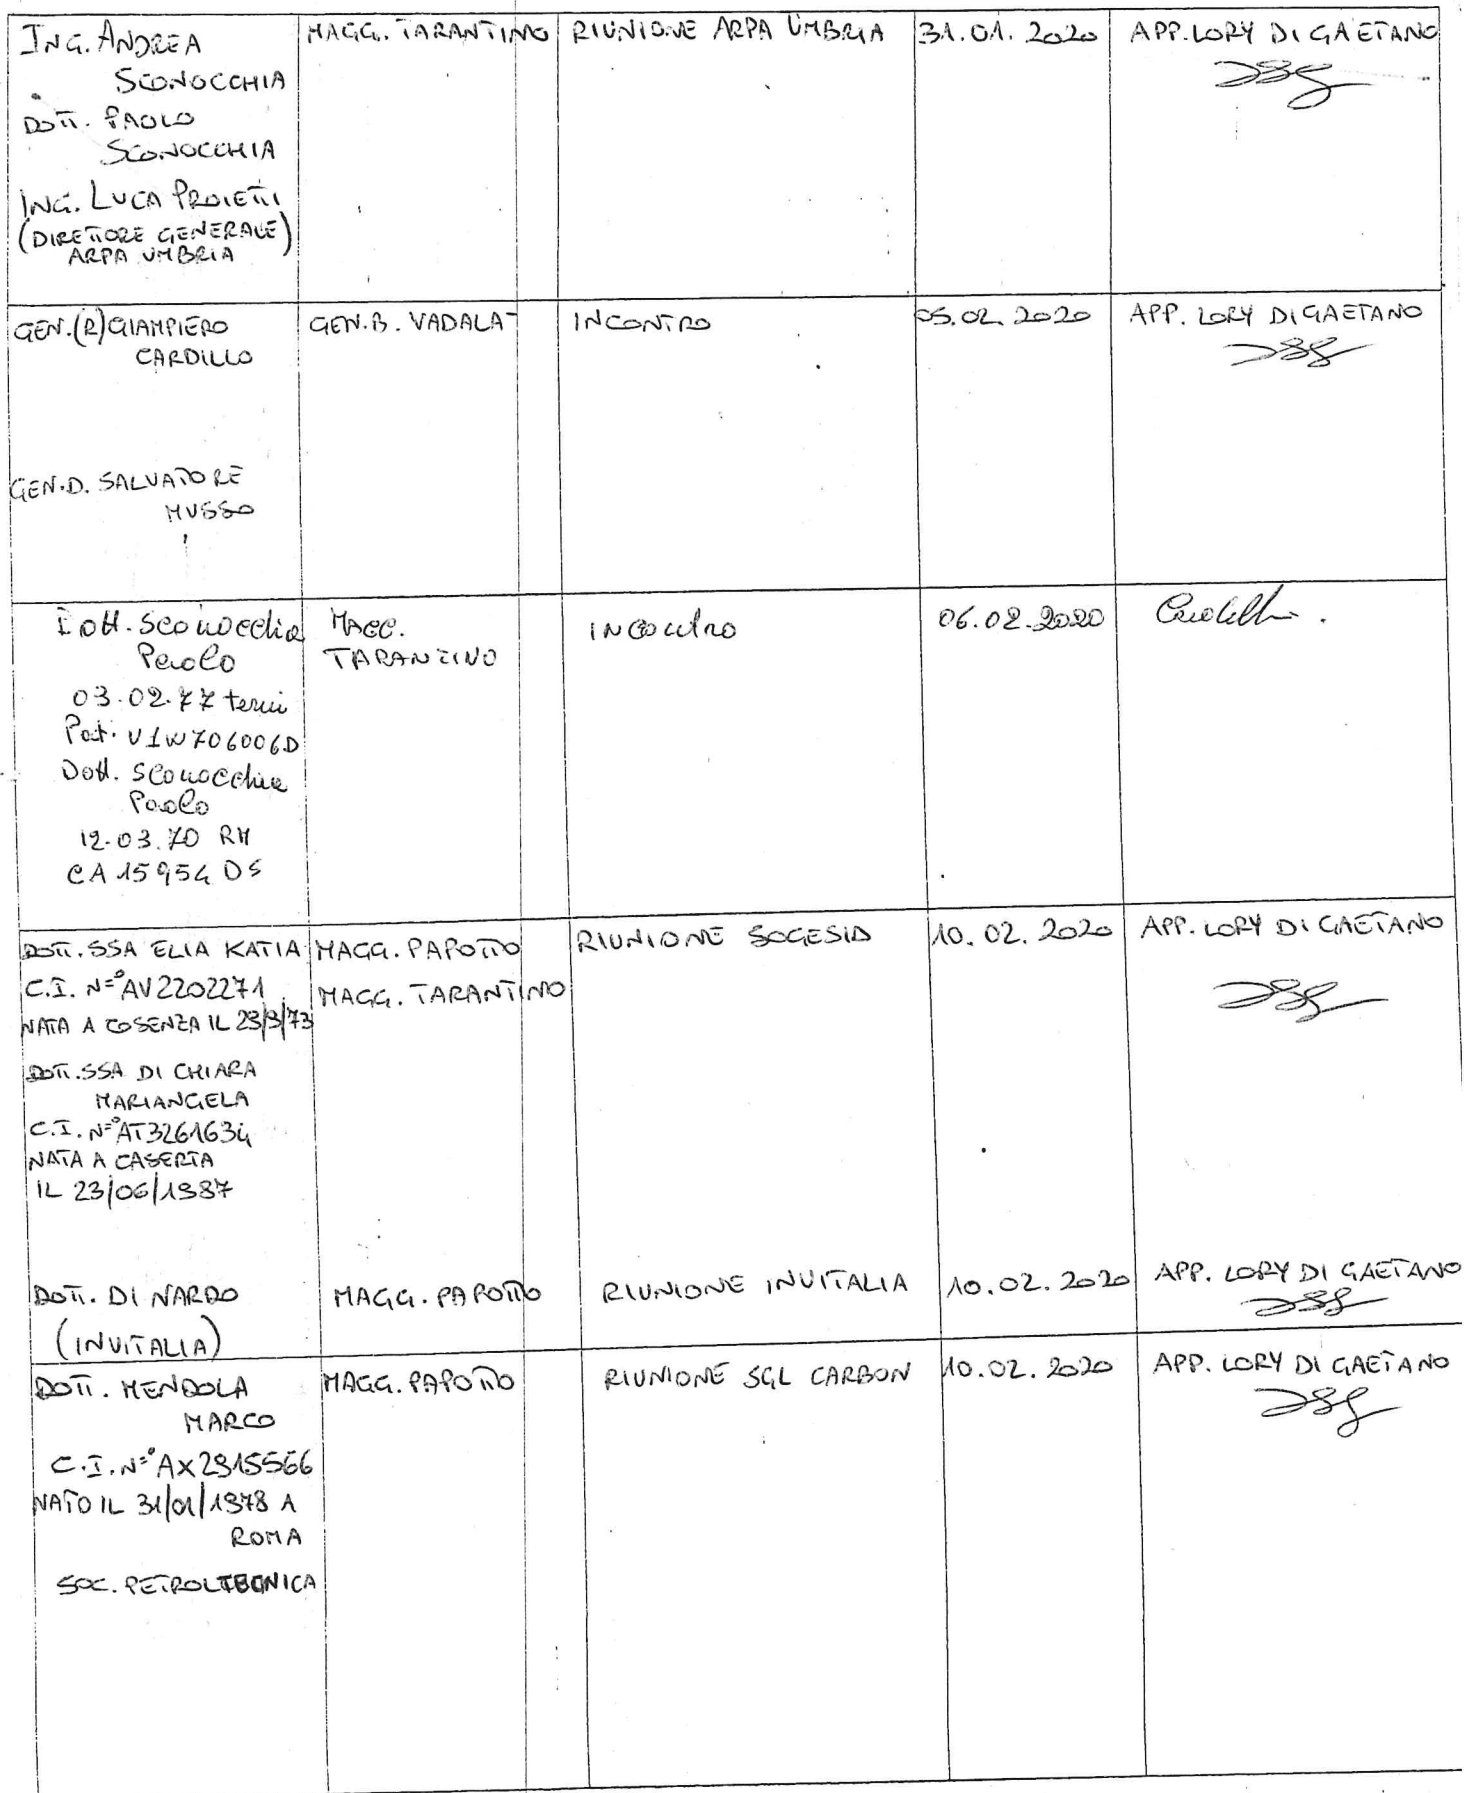 ING. ANDREA
SCONOCCHIA
DOTT. PAOLO
SCONOCCHIA
ING. LUCA PROIETTI
(DIRETTORE GENERALE)
ARPA UMBRIA
MAGG. TARANTINO
RIUNIONE ARPA UMBRIA
31.01.2020
APP. LORY DI GAETANO
GEN.(R) GIAMPIERO
CARDILLO
GEN.D. SALVATORE
MUSSO
GEN.B. VADALA'
INCONTRO
05.02.2020
APP. LORY DI GAETANO
Dott. Sconocchia
Paolo
03.02.77 terni
Pat. U1W706006D
Dott. Sconocchia
Paolo
12.03.70 RM
CA15954DS
MAGG.
TARANTINO
INCONTRO
06.02.2020
DOTT.SSA ELIA KATIA
C.I. N=° AV2202271
NATA A COSENZA IL 23/3/73
DOTT.SSA DI CHIARA
MARIANGELA
C.I. N=° AT3261634
NATA A CASERTA
IL 23/06/1987
MAGG. PAPOTTO
MAGG. TARANTINO
RIUNIONE SOGESID
10.02.2020
APP. LORY DI GAETANO
DOTT. DI NARDO
(INVITALIA)
MAGG. PAPOTTO
RIUNIONE INVITALIA
10.02.2020
APP. LORY DI GAETANO
DOTT. MENDOLA
MARCO
C.I. N=° AX2915566
NATO IL 31/01/1978 A
ROMA
SOC. PETROLTECNICA
MAGG. PAPOTTO
RIUNIONE SGL CARBON
10.02.2020
APP. LORY DI GAETANO